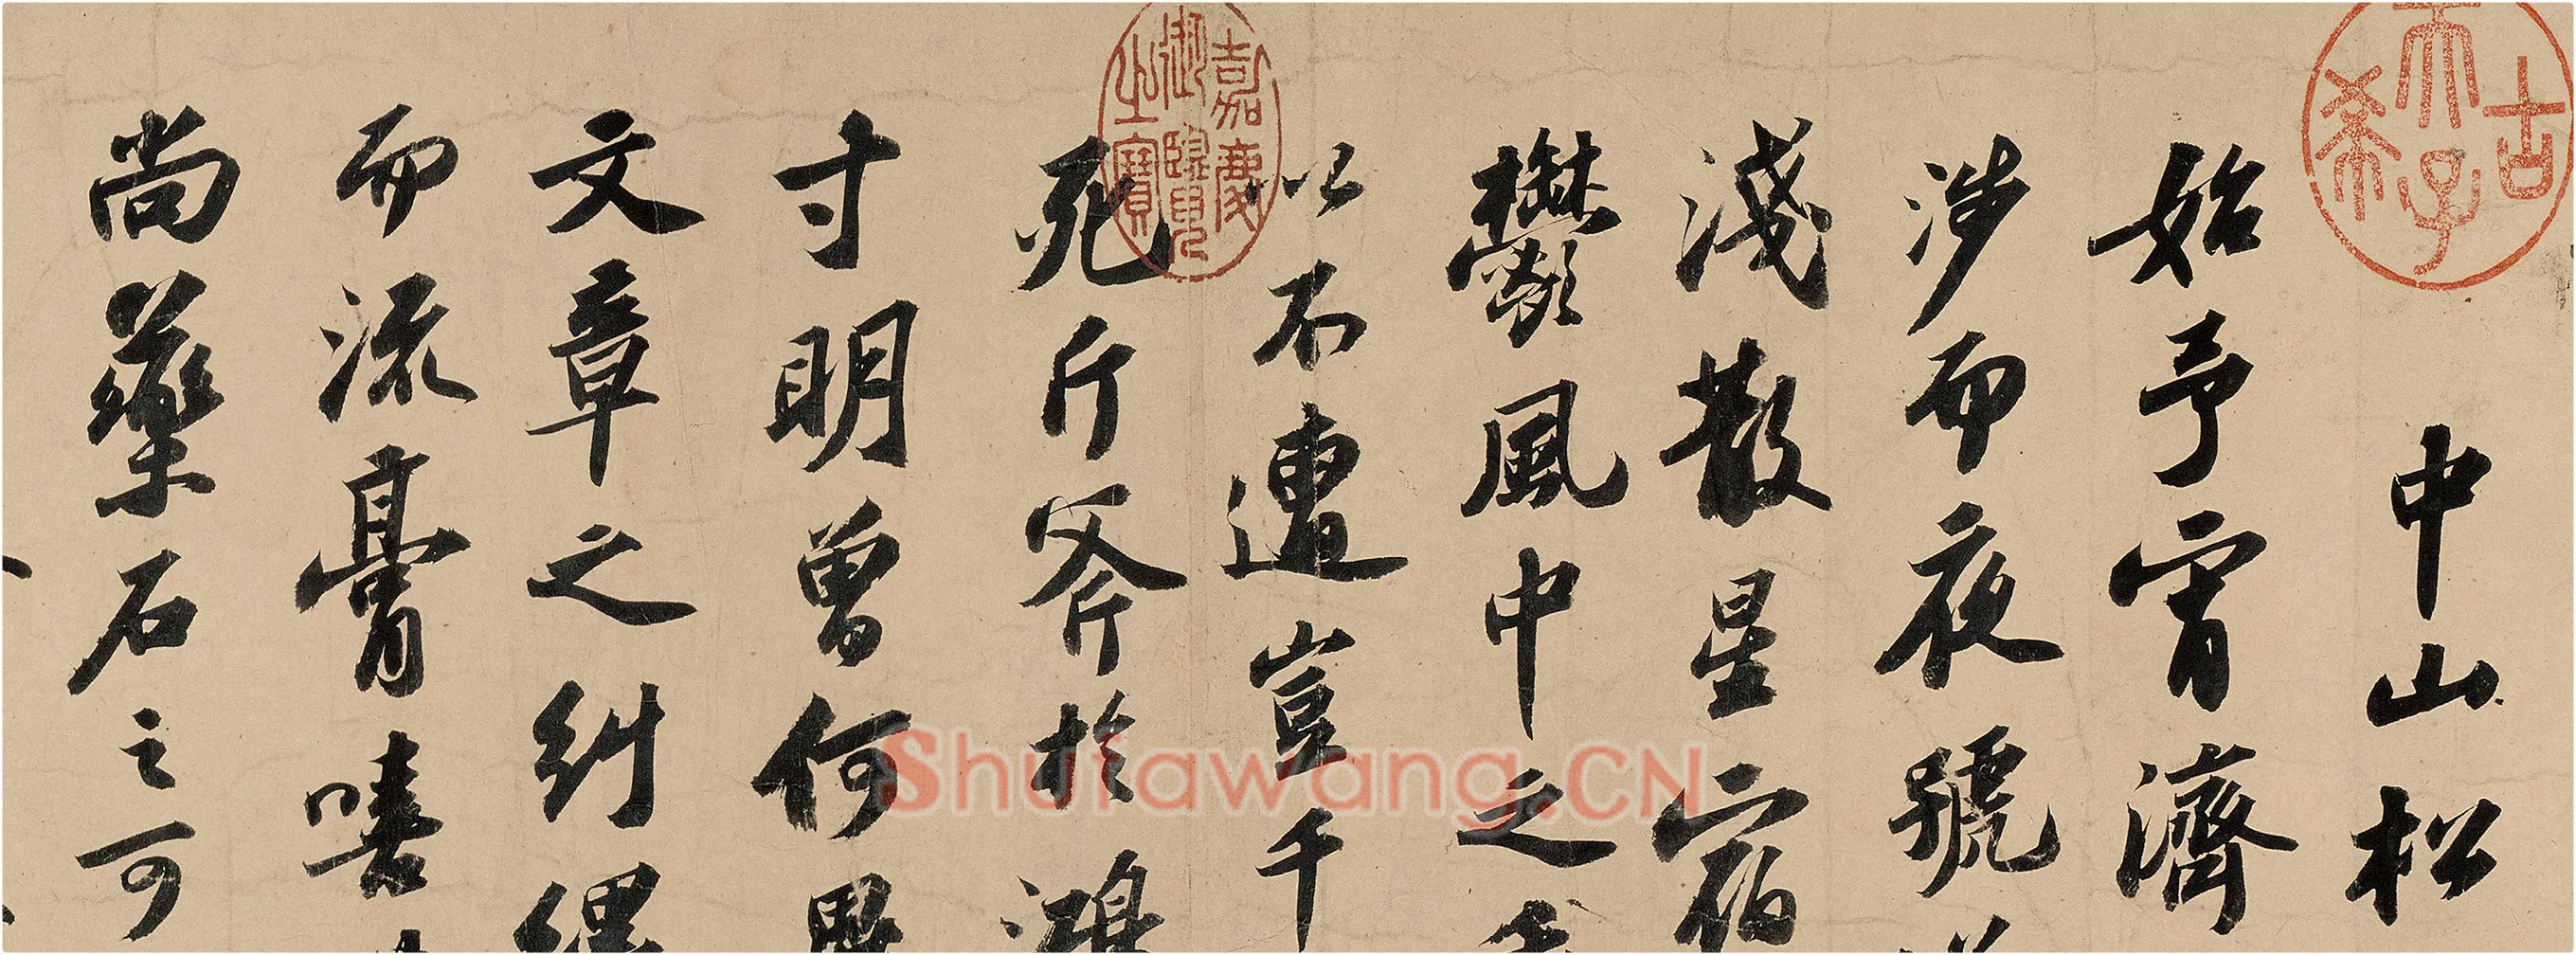 古希天子
中山松
始予宵濟
涉而夜號
淺散星宿
鬱風中之
以不遭豈千
嘉慶御覽之寶
死斤斧於鴻
寸明曾何
文章之糾
而流膏嘻
尚藥石之可
Shufawang.CN